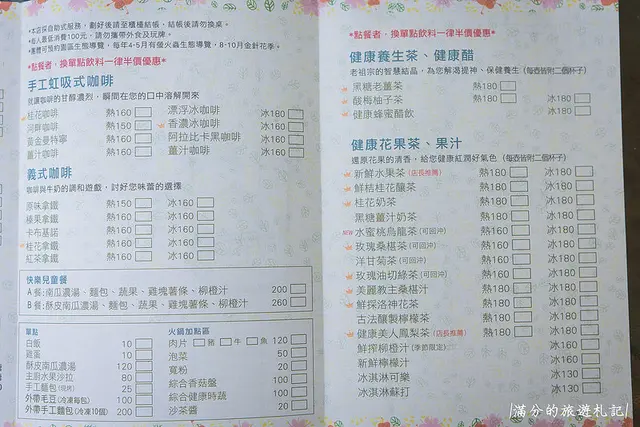 *本店採自助式服務，劃好後請至櫃檯結帳，結帳後請勿換桌。
*每人最低消費100元，請勿攜帶外食及玩牌。
*團體可預約園區生態導覽，每年4-5月有螢火蟲生態導覽，8-10月金針花季。
*點餐者，換單點飲料一律半價優惠*
手工虹吸式咖啡
就讓咖啡的甘醇濃烈，瞬間在您的口中溶解開來
桂花咖啡 熱160 漂浮冰咖啡 冰180
熱150 香濃冰咖啡 冰160
黃金曼特寧 熱160 阿拉比卡黑咖啡 冰160
薑汁咖啡 熱160 薑汁咖啡 冰160
義式咖啡
咖啡與牛奶的調和遊戲，討好您味蕾的選擇
原味拿鐵 熱150 冰160
榛果拿鐵 熱160 冰160
卡布基諾 熱160 冰160
桂花拿鐵 熱160 冰160
紅茶拿鐵 熱160 冰160
快樂兒童餐
A餐:南瓜濃湯、麵包、蔬果、雞塊薯條、柳橙汁 200
B餐:酥皮南瓜濃湯、麵包、蔬果、雞塊薯條、柳橙汁 260
單點
白飯 10
雞蛋 10
酥皮南瓜濃湯 120
主廚水果沙拉 80
手工麵包(燒烤) 25
外帶毛豆(冷凍每包) 100
外帶手工麵包(冷凍10個) 200
火鍋加點區
肉片 豬 牛 魚 120
泡菜 50
寬粉 20
綜合香菇盤 100
綜合健康時蔬 100
沙茶醬 20
*點餐者，換單點飲料一律半價優惠*
健康養生茶、健康醋
老祖宗的智慧結晶，為您解渴提神、保健養生(每壺皆附二個杯子)
黑糖老薑茶 熱180
酸梅柚子茶 熱180 冰180
健康蜂蜜醋飲 冰180
健康花果茶、果汁
還原花果的清香，給您健康紅潤好氣色(每壺皆附二個杯子)
新鮮水果茶(店長推薦) 熱180 冰180
鮮桔桂花釀茶 熱180 冰180
桂花奶茶 熱180 冰180
黑糖薑汁奶茶 熱180 冰180
水蜜桃烏龍茶(可回沖) 熱160 冰180
玫瑰桑椹茶(可回沖) 熱160 冰160
洋甘菊茶(可回沖) 熱160 冰160
玫瑰油切綠茶(可回沖) 熱160 冰160
美麗教主桑椹汁 熱180 冰180
鮮採洛神花茶 熱180 冰180
古法釀製檸檬茶 熱180 冰180
健康美人鳳梨茶(店長推薦) 熱180 冰180
鮮搾柳橙汁(季節限定) 冰160
新鮮檸檬汁 冰160
冰淇淋可樂 冰130
冰淇淋蘇打 冰130
|滿分的旅遊札記|